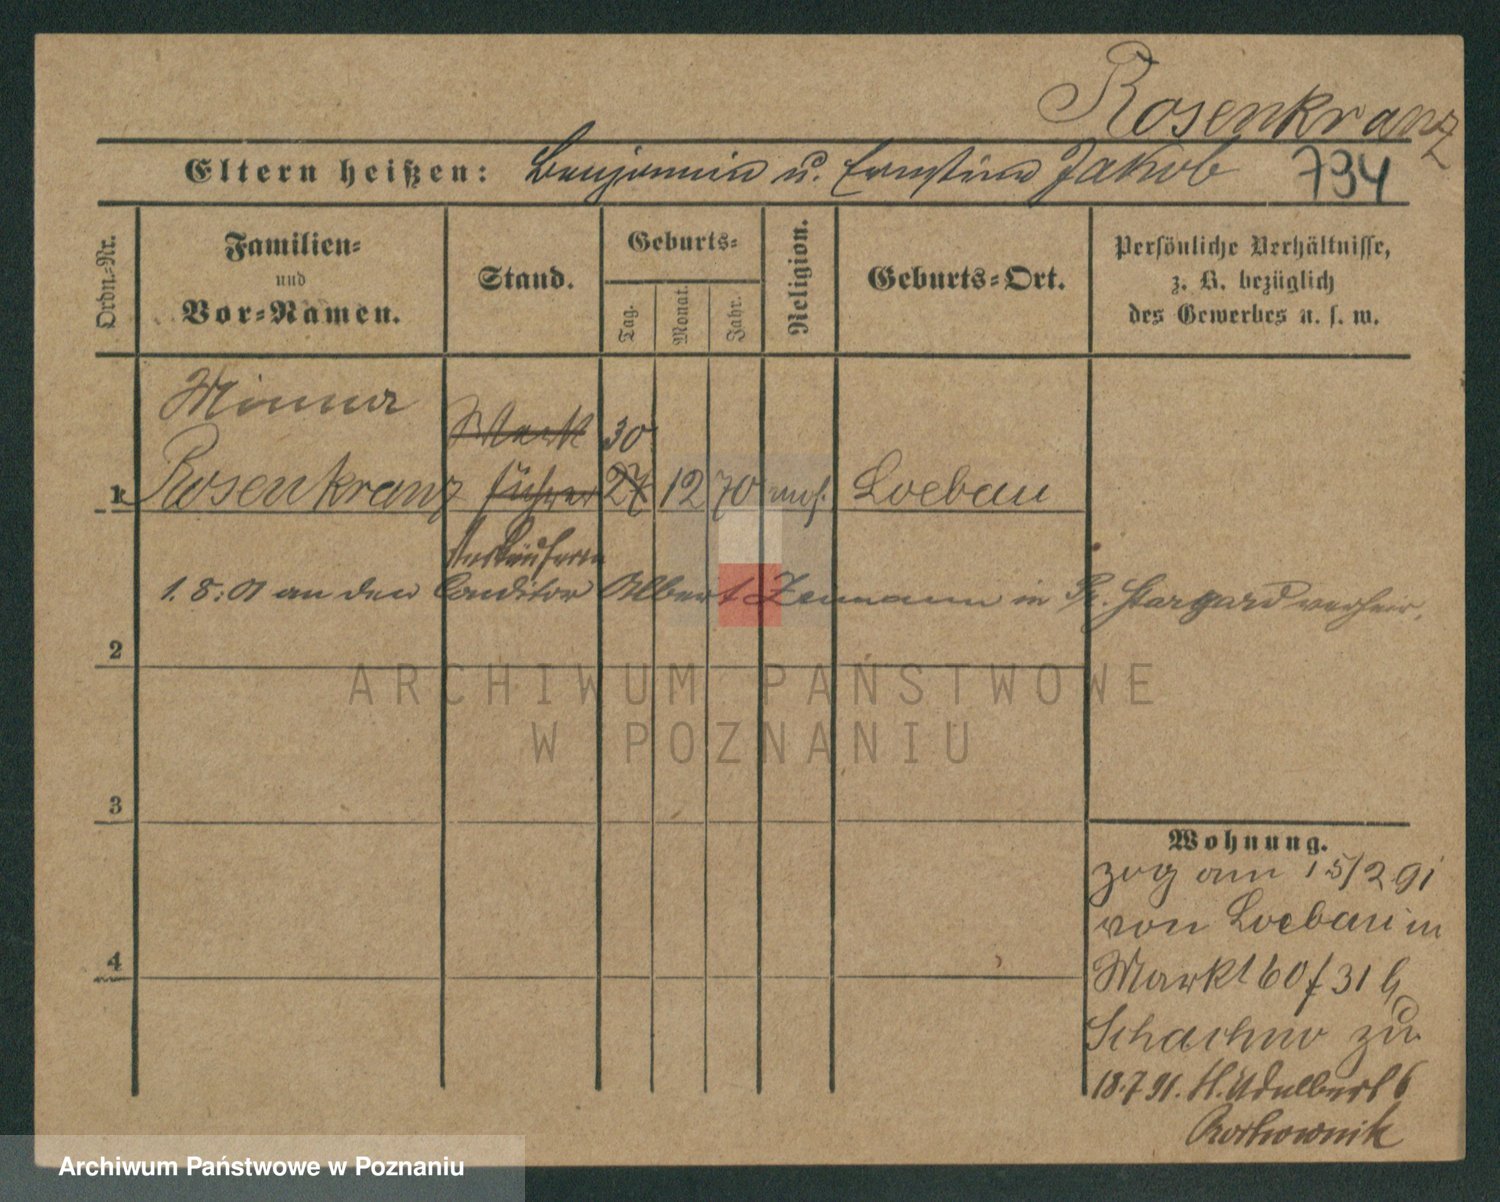 Rosenkranz
Eltern heißen: Benjamin u. Ernstine Jakob 794
Ordn.-Nr.
Familien-
und
Vor-Namen.
Stand.
Geburts-
Tag.
Monat.
Jahr.
Religion.
Geburts-Ort.
Persönliche Verhältnisse,
z. B. bezüglich
des Gewerbes u. s. w.
Minna
30
1 Rosenkranz 27 12 70 mos. Loebau
Verkäuferin
1.8.01 an den Conditor Albert Zemann in Pr. Stargard verheir.
2
3
4
Wohnung.
zog am 15/2 91
von Loebau in
Markt 60 / 31 b
zu
18.7.91. St. Adalbert 6
ARCHIWUM PAŃSTWOWE
W POZNANIU
Archiwum Państwowe w Poznaniu